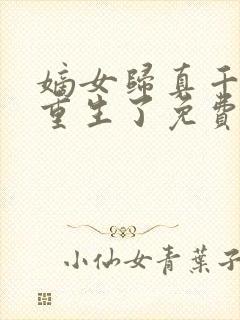 嫡女归真千
重生了免费
小仙女青葉子